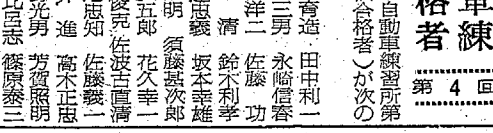 車練
格者
第4回
自動車練習所第
合格者)が次の
育造 田中利一
三男 永崎信春
洋二 佐藤 功
清 鈴木利孝
忠義 坂本幸雄
明 須藤甚次郎
五郎 花久幸一
俊克 佐波古直清
忠知 佐藤義一
進 高木正忠
光男 芳賀照明
呂志 篠原泰三